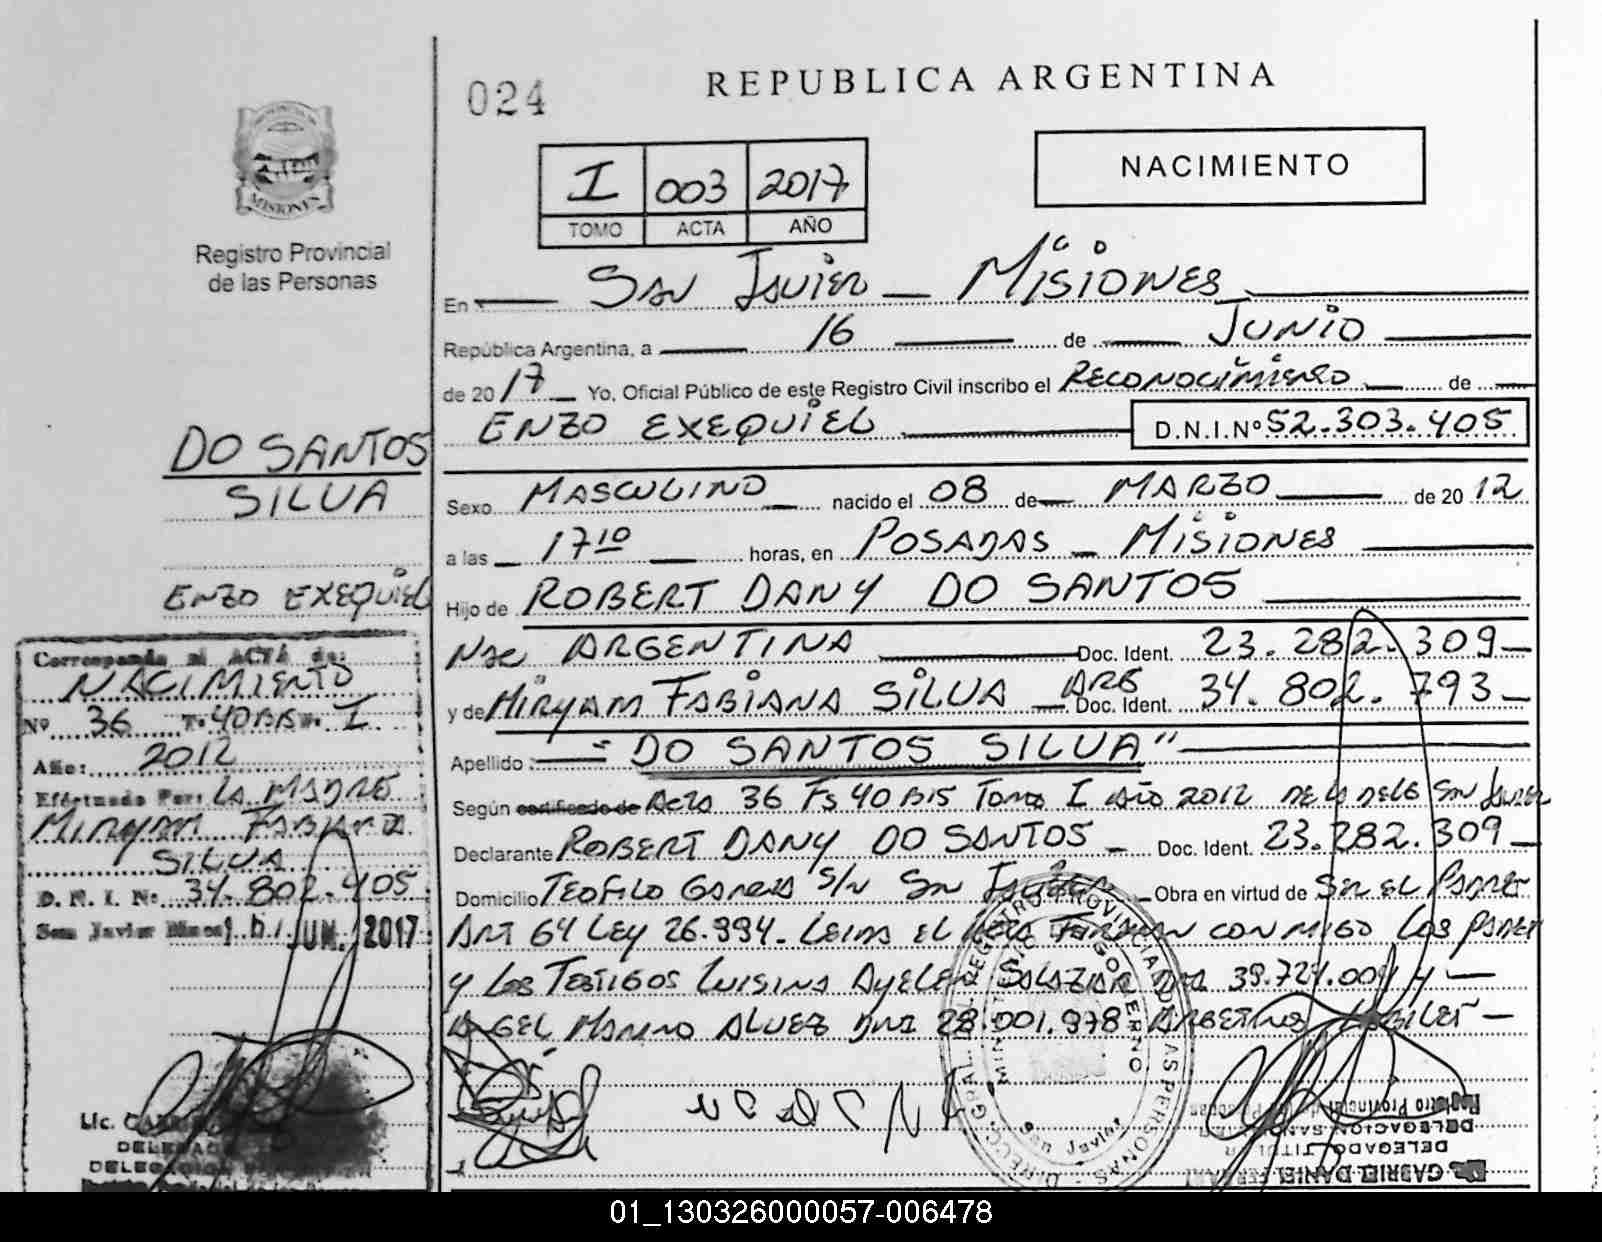 024
REPUBLICA ARGENTINA
NACIMIENTO
I 003 2017
TOMO ACTA AÑO
MISIONES
Registro Provincial
de las Personas
En San Javier - Misiones
República Argentina, a 16 de Junio
de 2017 Yo, Oficial Público de este Registro Civil inscribo el Reconocimiento de
ENZO EXEQUIEL D.N.I.Nº 52.303.405
Sexo MASCULINO nacido el 08 de MARZO de 2012
a las 17 10 horas, en POSADAS - MISIONES
Hijo de ROBERT DANY DO SANTOS
Nac ARGENTINA Doc. Ident. 23.282.309
y de MIRYAM FABIANA SILVA ARG Doc. Ident. 34.802.793
Apellido: "DO SANTOS SILVA"
Según certificado de Acta 36 Fs 40 BIS Tomo I Año 2012 DE LA DELEG San Javier
Declarante ROBERT DANY DO SANTOS Doc. Ident. 23.282.309
Domicilio TEOFILO S/N San Javier Obra en virtud de Ser el Padre
Art 64 Ley 26.994. Leida el Acta Firman conmigo Los Padres
y Los Testigos Luisina Ayelen Salazar DNI 39.721.001 y
Angel Marino Alvez DNI 28.001.978
DO SANTOS
SILVA
ENZO EXEQUIEL
Corresponde al ACTA de:
NACIMIENTO
Nº 36 Fº 40 BIS Tº I
Año: 2012
Efectuado Por: LA MADRE
MIRYAM FABIANA
SILVA
D. N. I. Nº 34.802.405
San Javier Mnes, 16 JUN. 2017
Lic.
DELEGADO
DELEGACION
DIREC. GRAL. DEL REGISTRO PROVINCIAL DE LAS PERSONAS
MINISTERIO DE GOBIERNO
San Javier
Registro Provincial de las Personas
DELEGACION SAN JAVIER
DELEGADO TITULAR
Dr. GABRIEL DANIEL
01_130326000057-006478